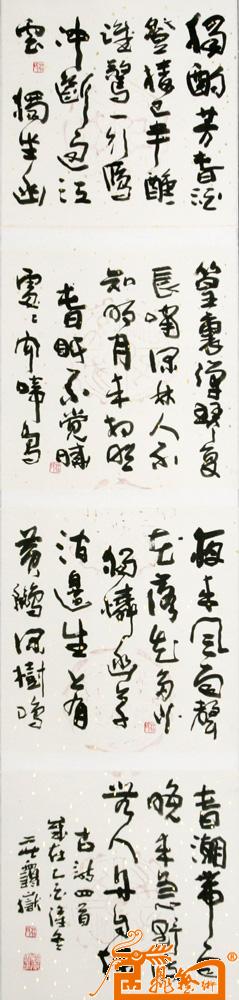 獨酌芳春酒
登樓已半醺
誰驚一行雁
沖斷過江
雲 獨坐幽
篁裏彈琴復
長嘯深林人不
知明月来相照
春眠不覺曉
處處聞啼鳥
夜来風雨聲
花落知多少
獨憐幽草
澗邊生上有
黄鸝深樹鳴
春潮帶雨
晚来急野渡
無人舟自横
古詩四首